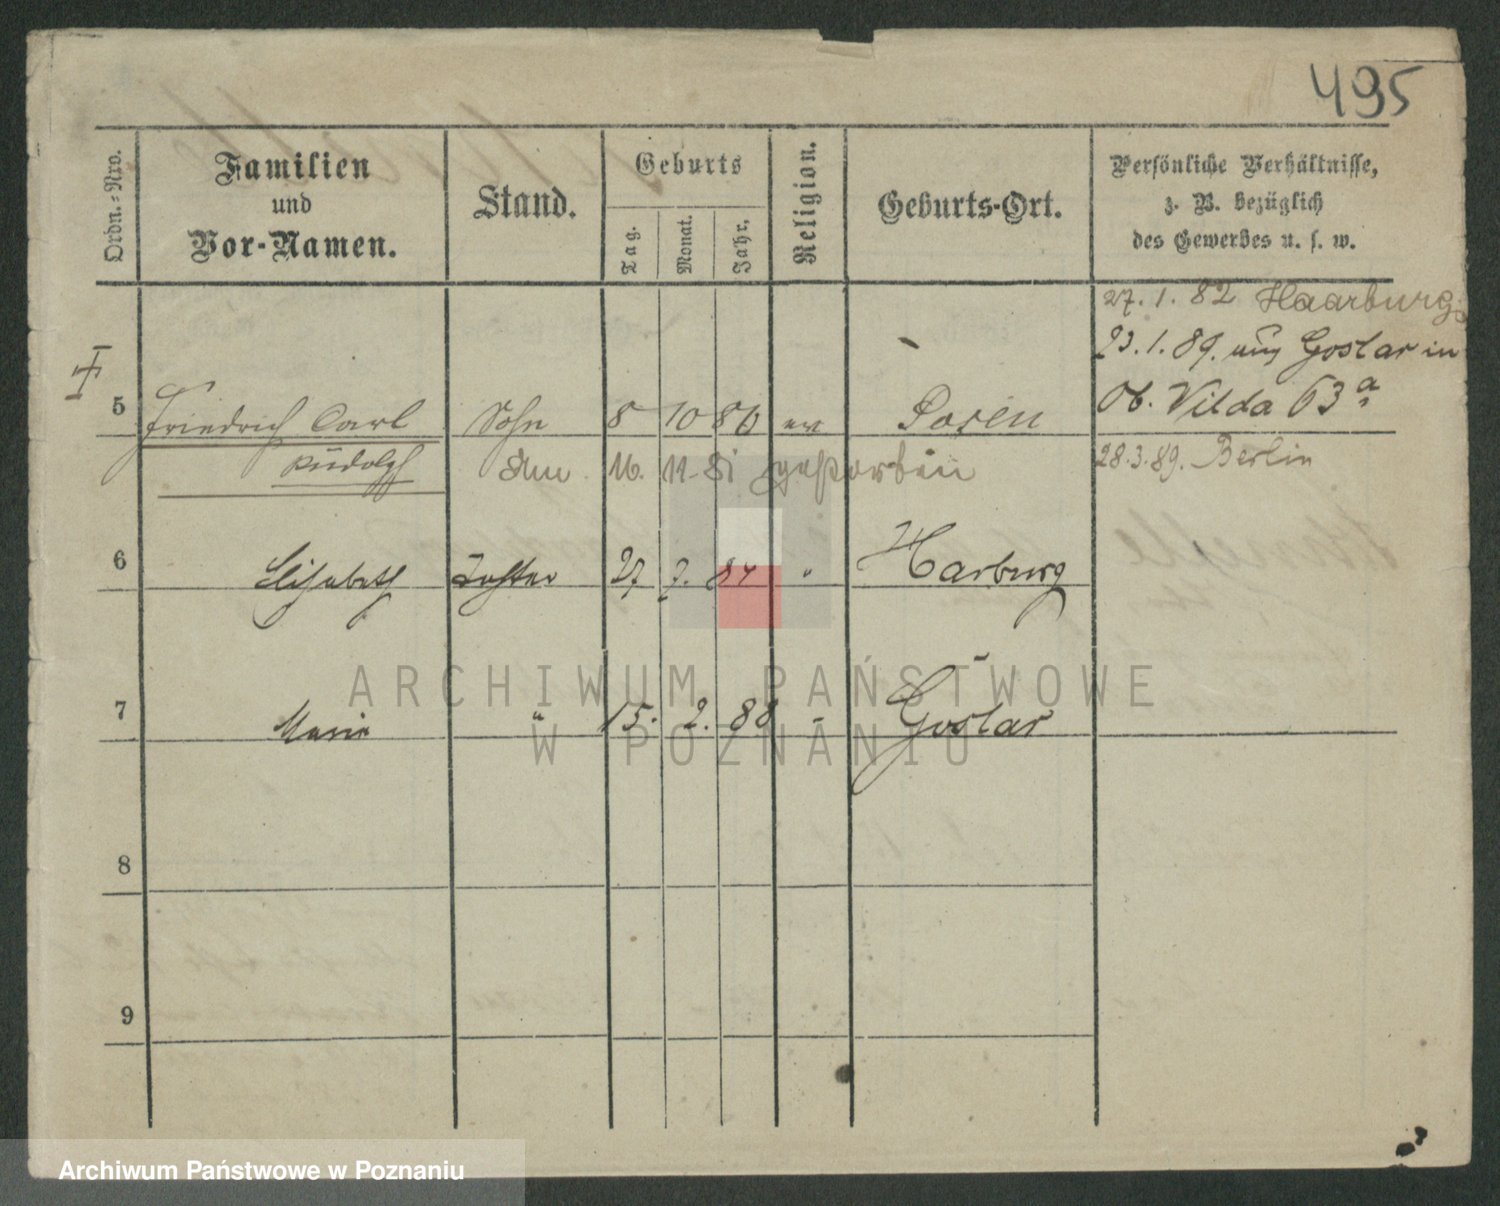 495
Ordn.-Nro.
Familien
und
Vor-Namen.
Stand.
Geburts
Tag.
Monat.
Jahr.
Religion.
Geburts-Ort.
Persönliche Verhältnisse,
z. B. bezüglich
des Gewerbes u. s. w.
27. 1. 82 Haarburg
23. 1. 89. aus Goslar in
Ob. Vilda 63a
5 Friedrich Carl Sohn 8 10 80 ev Posen
Rudolph Am 16. 11. 81 gestorben
28.3.89. Berlin
6 Elisabeth Tochter 27 7. 84 " Harburg
7 Marie " 15. 2. 88 " Goslar
8
9
ARCHIWUM PAŃSTWOWE
W POZNANIU
Archiwum Państwowe w Poznaniu